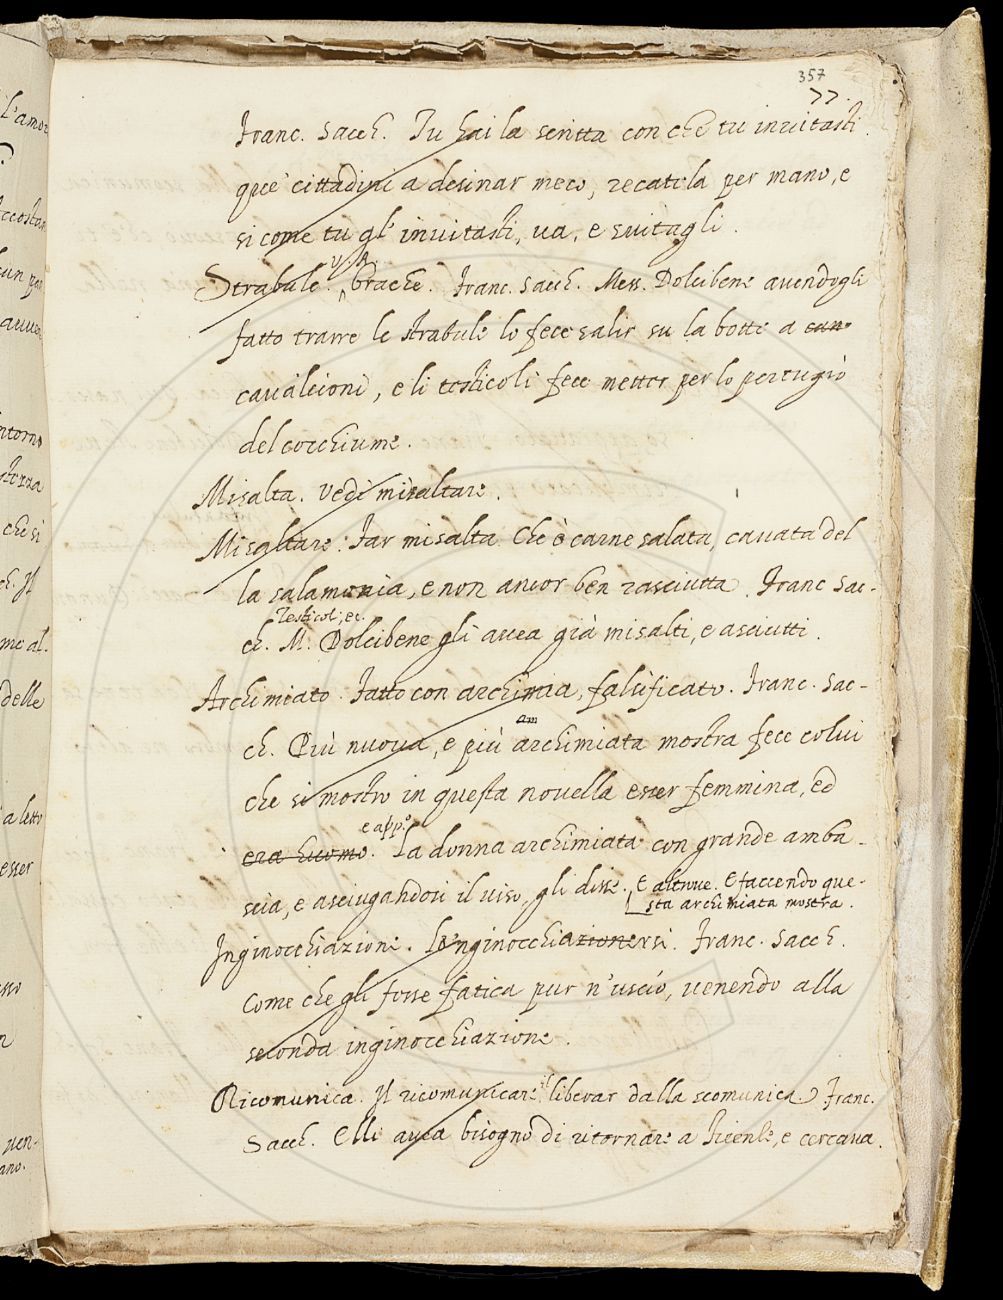 357
77.
Franc. Sacch. Tu hai la scritta con che tu invitasti
que' cittadini a desinar meco, recatela per mano, e
si come tu gl' invitasti, va, e svitagli.
Strabule. V. A. brache. Franc. Sacch. Mess. Dolcibene avendogli
fatto trarre le strabule lo fece salir su la botte a
cavalcioni, e li testicoli fece metter per lo pertugio
del cocchiume.
Misalta. Vedi misaltare.
Misaltare. Far misalta. Che è carne salata, cavata del
la salamoia, e non ancor ben rasciutta. Franc. Sac-
testicoli, ec.
ch. M. Dolcibene gli avea già misalti, e asciutti.
Archimiato. Fatto con archimia, falsificato. Franc. Sac-
am
ch. Più nuova, e più archimiata mostra fece colui
che si mostrò in questa novella esser femmina, ed
e app.º
era huomo. La donna archimiata con grande amba-
scia, e asciugandosi il viso, gli disse. E altrove. E faccendo que-
sta archimiata mostra.
Inginocchiazione. Lo 'nginocchiazionersi. Franc. Sacch.
Come che gli fosse fatica pur n'uscío, venendo alla
seconda inginocchiazione.
Ricomunica. Il ricomunicare, il liberar dalla scomunica. Franc.
Sacch. Elli avea bisogno di ritornare a, e cercava.
L'amor
accostar
un par
avven
ntorno
storza
che si
ch. Il
me al.
delle
a letto
esser
sso
n
ven-
ano.